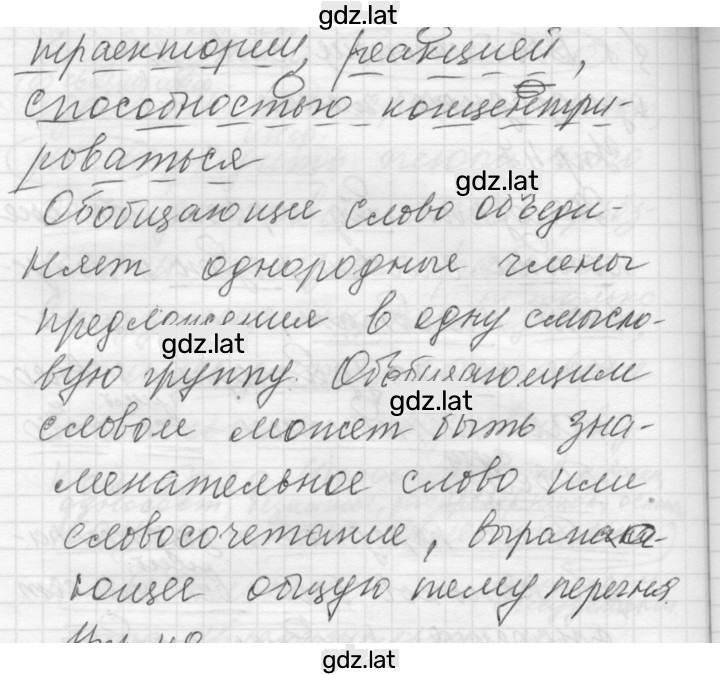 gdz.lat
траектории, реакцией,
способностью концентри-
роваться
gdz.lat
Обобщающие слово объеди-
няет однородные члены
предложения в одну смысло-
gdz.lat
вую группу. Обобщающим
gdz.lat
словом может быть зна-
менательное слово или
словосочетание, выража-
ющее общую тему перечня.
gdz.lat